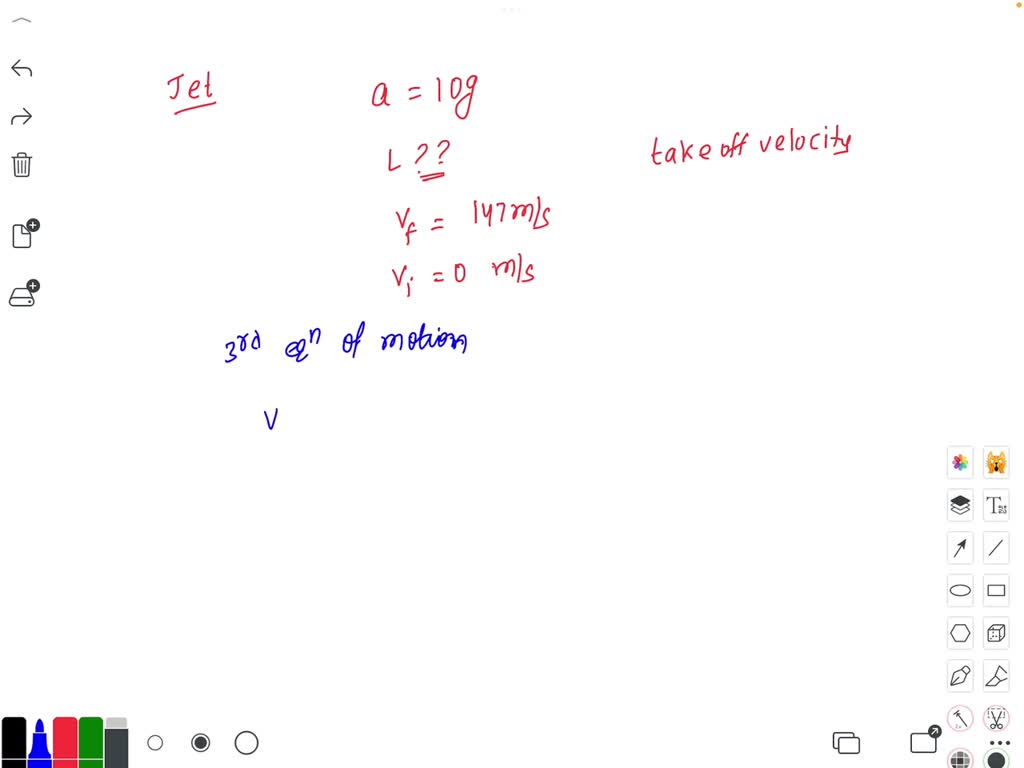 Jet
a = 10g
L ??
take off velocity
Vf = 147 m/s
Vi = 0 m/s
3rd eqn of motion
V